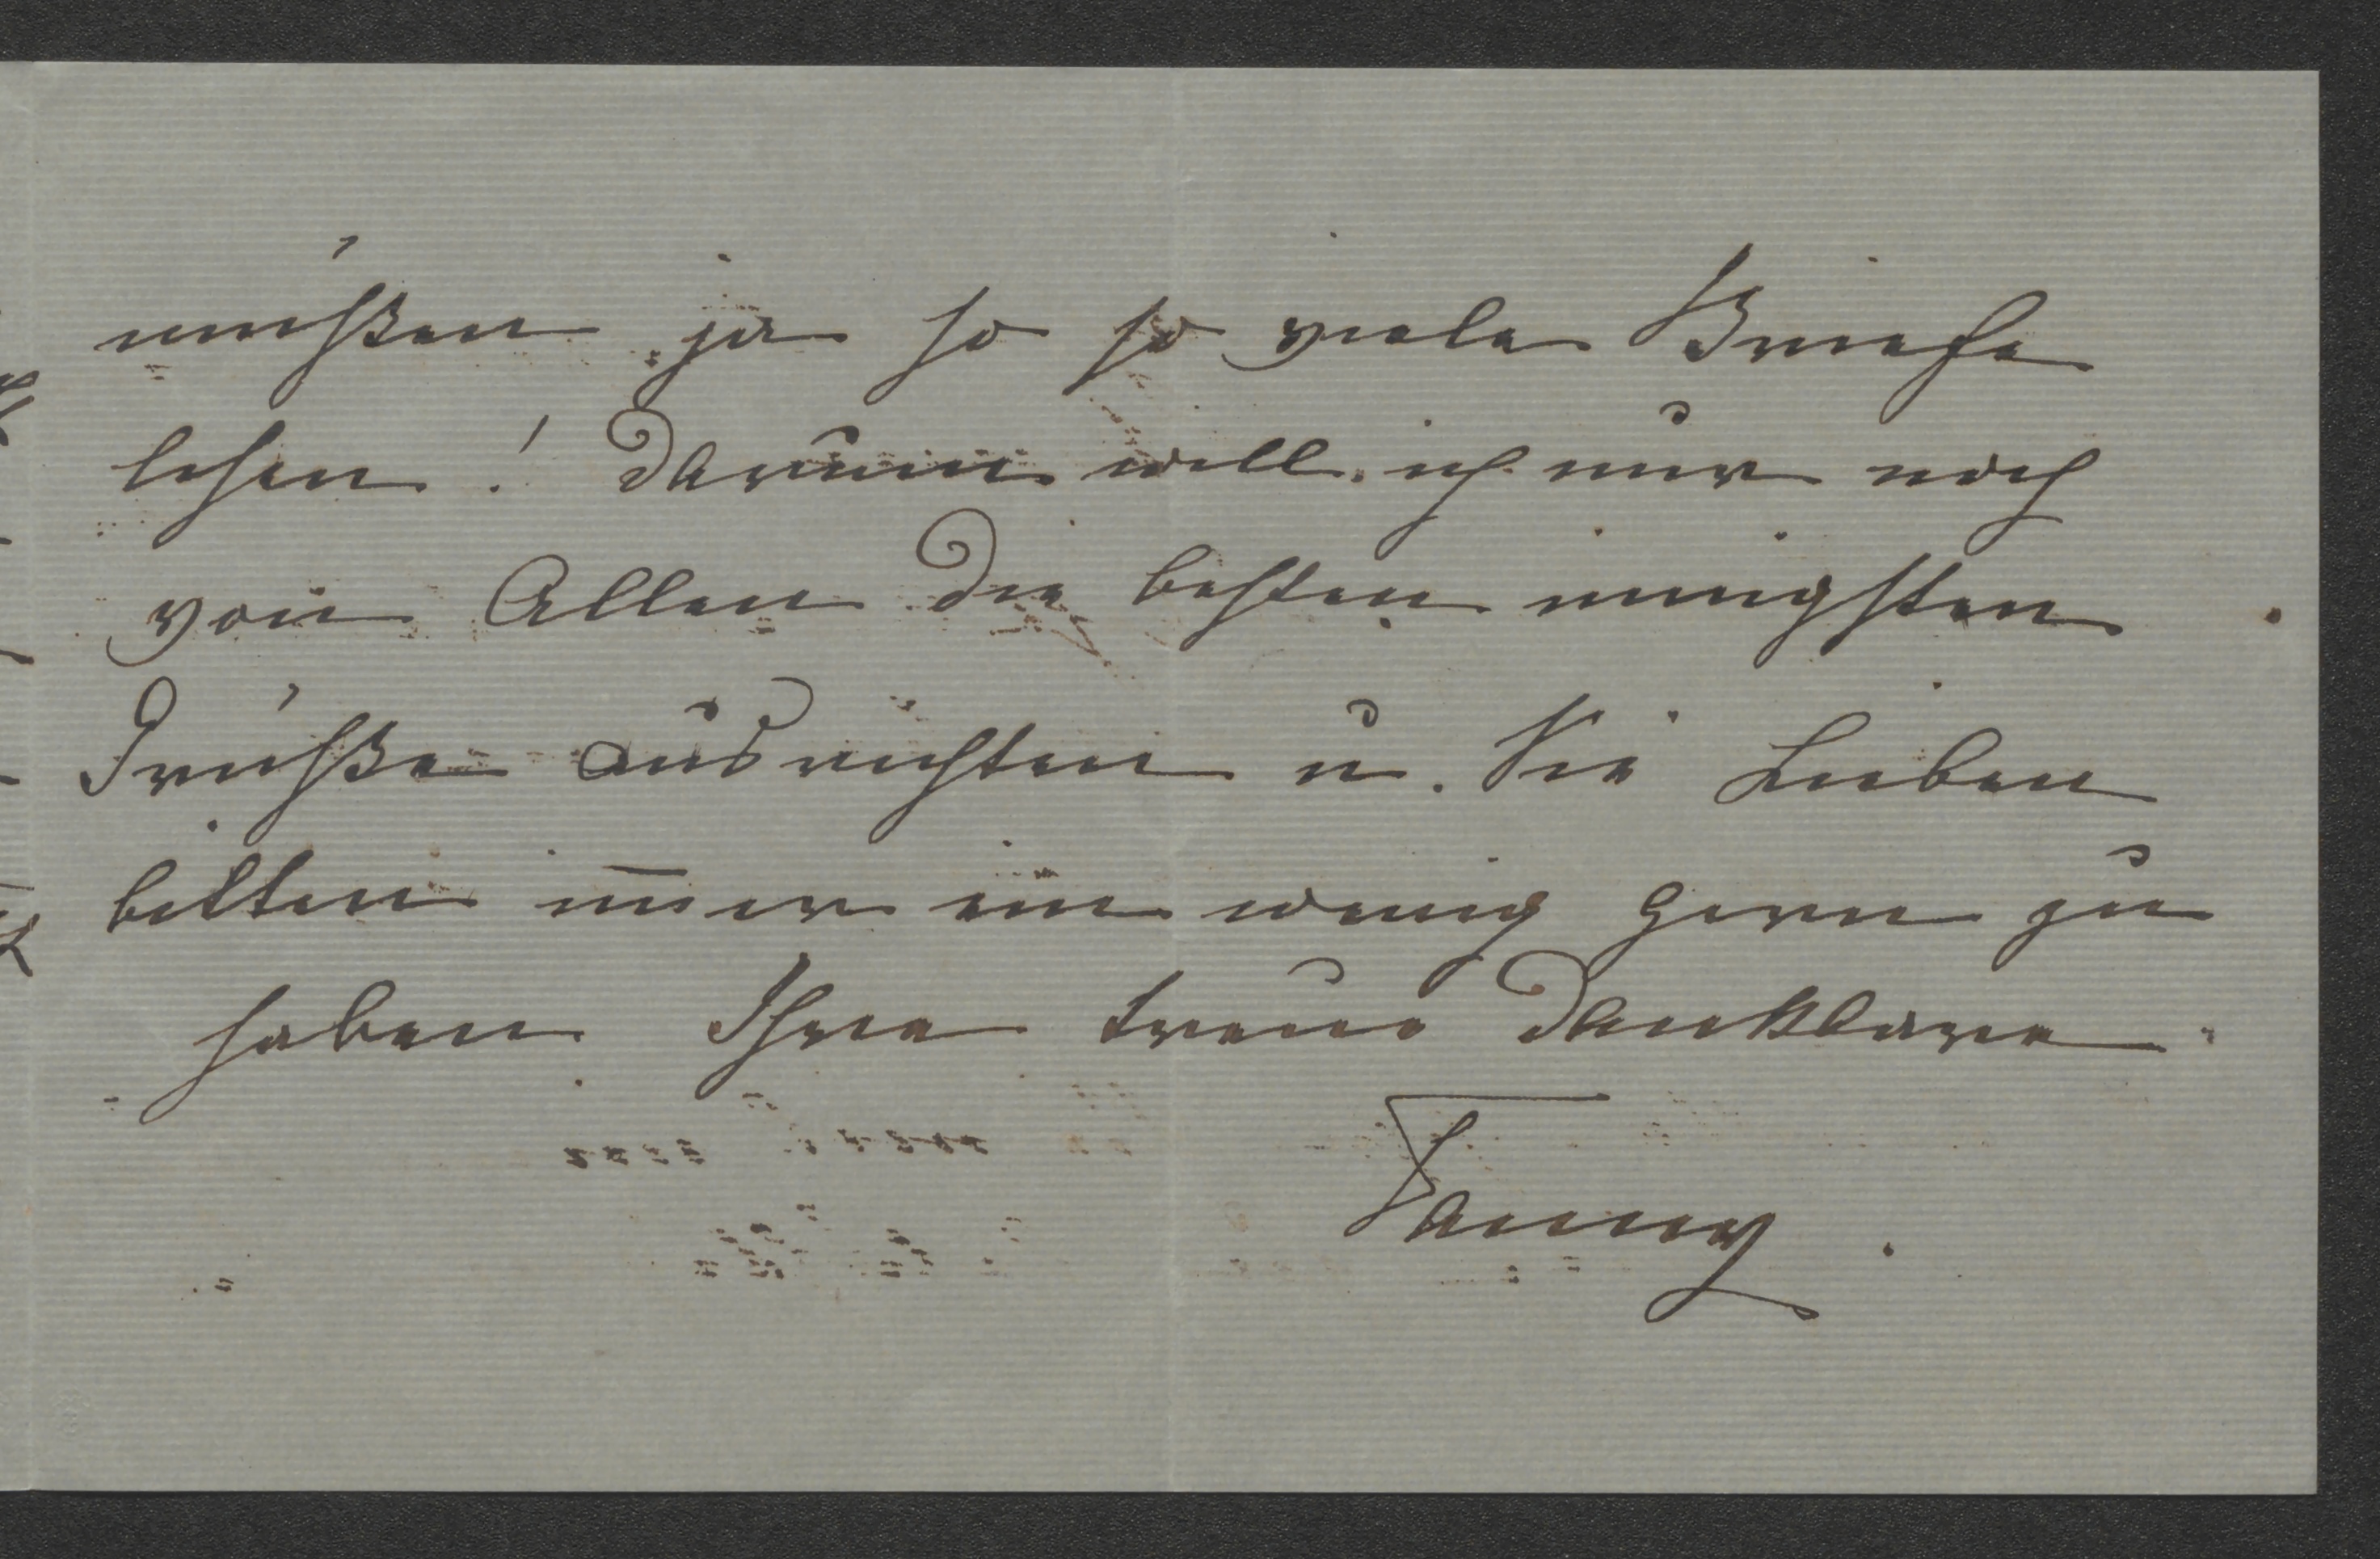 müßen ja so so viele Briefe
lesen! Darum will ich nur noch
von Allen die besten innigsten
Grüße ausrichten u. Sie Lieben
bitten im̅er ein wenig gern zu
haben Ihre treue dankbare
Fanny.